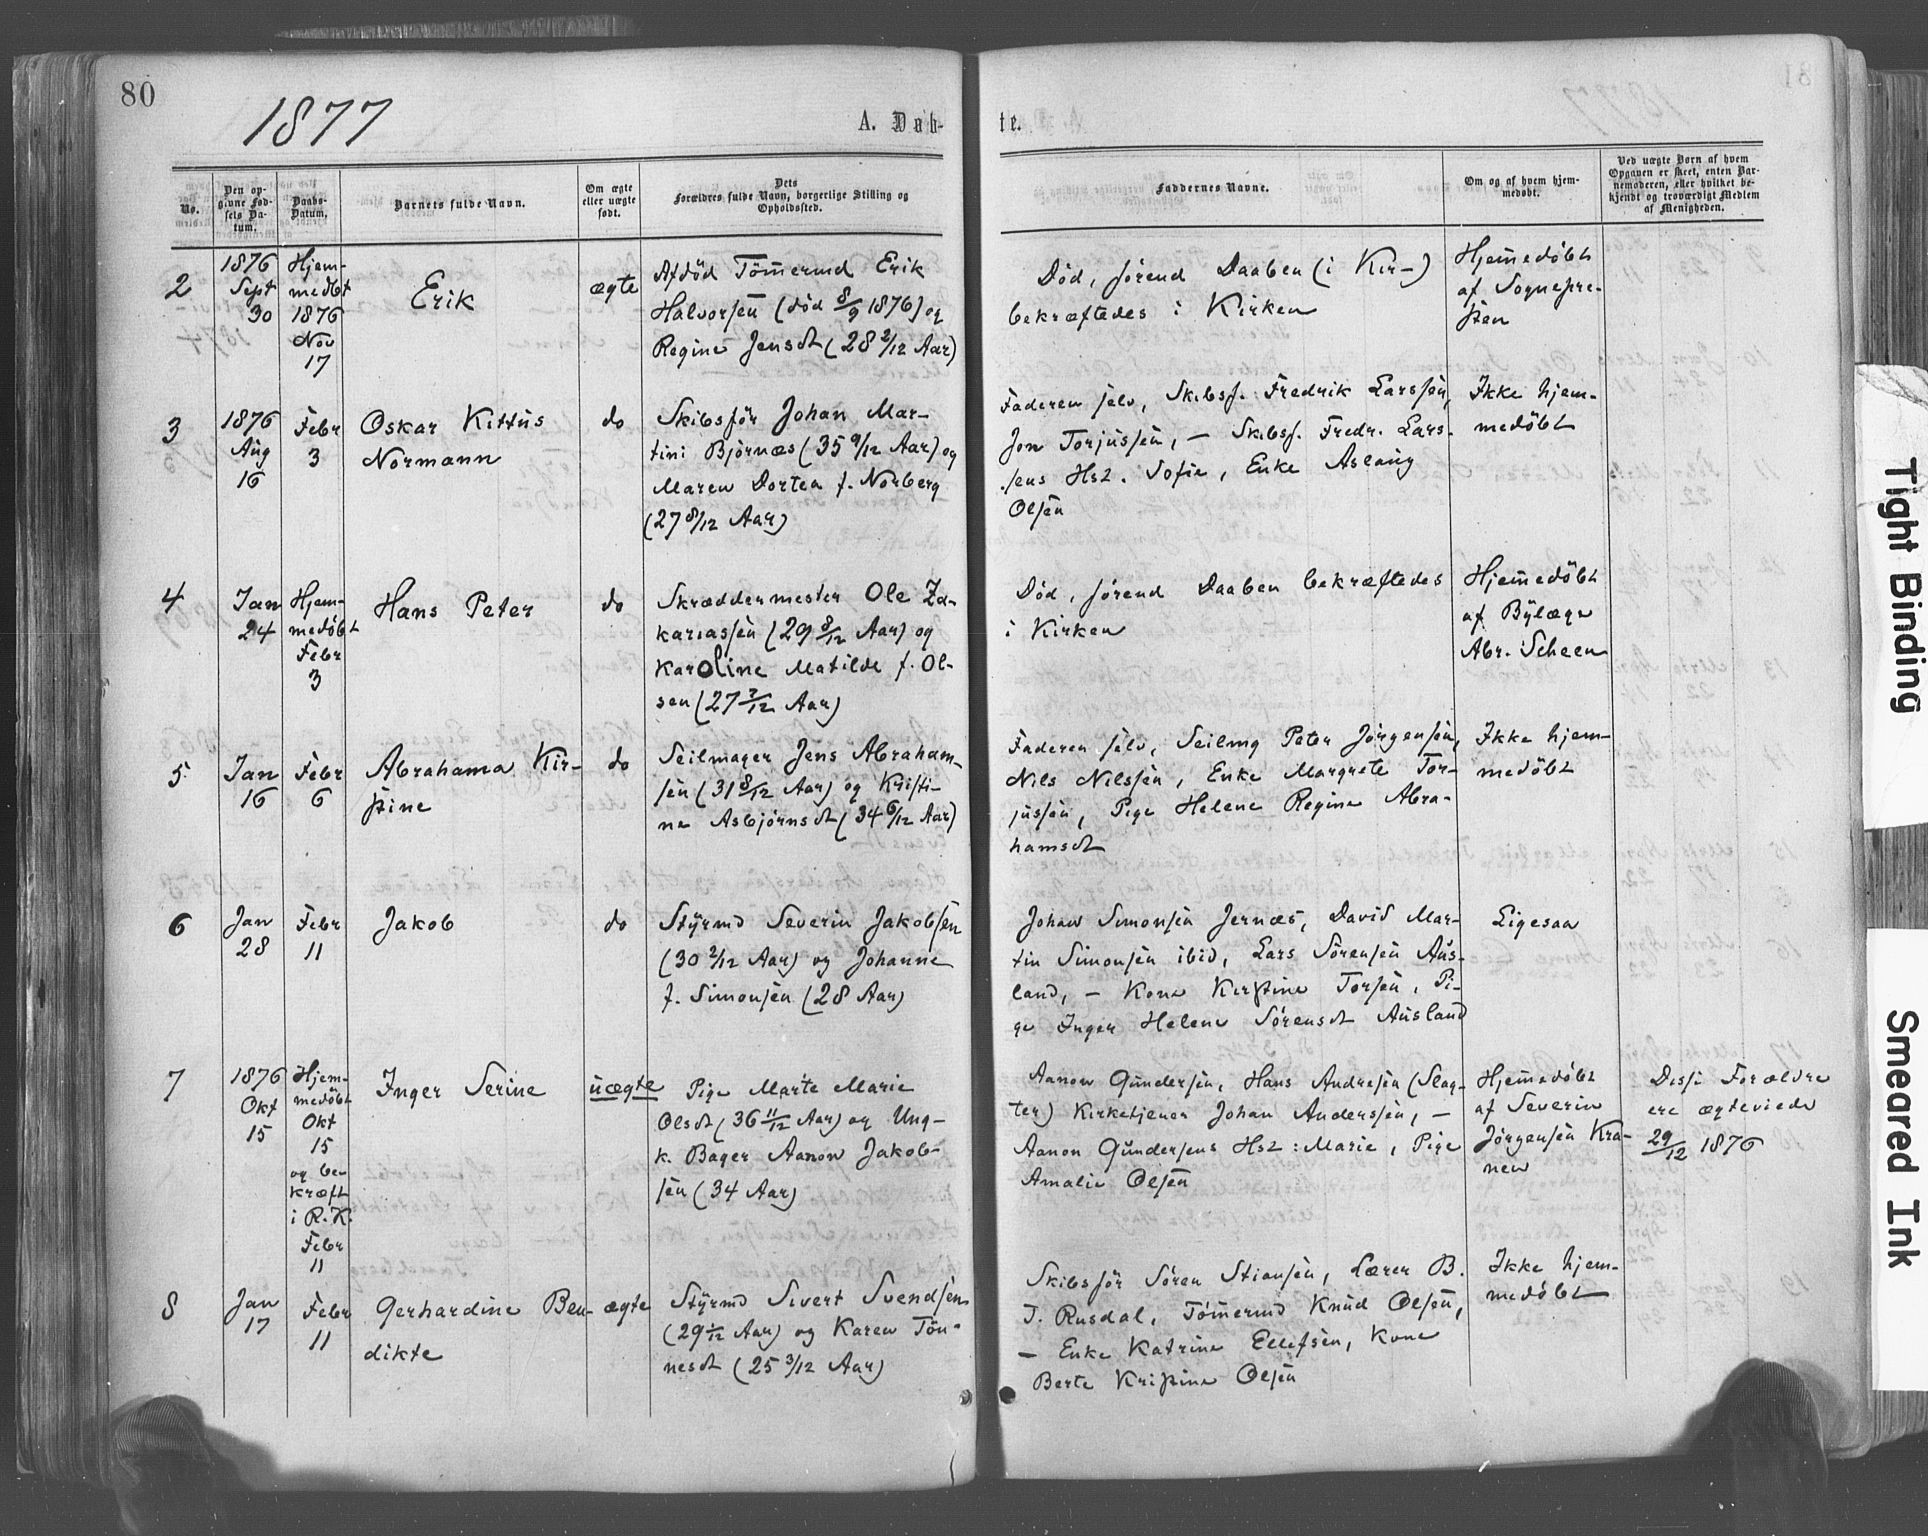 80
1877
A. Døb-
te.
No.
Den op-
givne Fød-
sels Da-
tum.
Daabs-
Datum.
Barnets fulde Navn.
Om ægte
eller uægte
født.
Dets
Forældres fulde Navn, borgerlige Stilling og
Opholdssted.
Faddernes Navne.
Om og af hvem hjem-
medøbt.
Ved uægte Born af hvem
Opgaven er skeet, enten Bar-
nemoderen, eller hvilket be-
kjendt og troværdigt Medlem
af Menigheden.
2
1876
Sept
30
Hjem-
medöbt
1876
Nov
17
Erik
ægte
Afdöd Tömermd Erik
Halvorsen (död 8/9 1876) og
Regine Jensdt (28 2/12 Aar)
Död, förend Daaben (i Kir-)
bekræftedes i Kirken
Hjemedöbt
af Sognepre-
sten
3
1876
Aug
16
Febr
3
Oskar Kittus
Normann
do
Skibsför Johan Mar-
tini Björnæs (35 9/12 Aar) og
Maren Dortea f. Norberg
(27 8/12 Aar)
Faderen selv, Skibsf. Fredrik Larssen,
Jon Torjussen, — Skibsf. Fredr. Lars-
sens Hst. Sofie, Enke Aslaug
Olsen
Ikke hjem-
medöbt
4
Jan
24
Hjem-
medöbt
Febr
3
Hans Peter
do
Skræddermester Ole Za-
kariassen (29 8/12 Aar) og
Karoline Matilde f. Ol-
sen (27 7/12 Aar)
Död, förend Daaben bekræftedes
i Kirken
Hjemedöbt
af Bylæge
Abr. Scheen
5
Jan
16
Febr
6
Abrahama Kir-
stine
do
Seilmager Jens Abraham-
sen (31 8/12 Aar) og Kristi-
ne Asbjörnsdt (34 6/12 Aar)
Faderen selv, Seilmg Peter Jörgensen,
Nils Nilssen, Enke Margrete Tor-
jussen, Pige Helene Regine Abra-
hamsdt
Ikke hjem-
medöbt
6
Jan
28
Febr
11
Jakob
do
Styrmd Severin Jakobsen
(30 2/12 Aar) og Johanne
f. Simonsen (28 Aar)
Johan Simonsen Jernæs, David Mar-
tin Simonsen ibid, Lars Sörensen Aus-
land, — Kone Kirstine Torsen, Pi-
ge Inger Helene Sörensdt Ausland
Ligesaa
7
1876
Okt
15
Hjem-
medöbt
Okt
15
og be-
kræft
i R. K.
Febr
11
Inger Serine
uægte
Pige Marte Marie
Olsdt (36 11/12 Aar) og Ung-
k. Bager Aanon Jakob-
sen (34 Aar)
Aanon Gundersen, Hans Andresen (Slag-
ter) Kirketjener Johan Anderssen, —
Aanon Gundersens Hst: Marie, Pige
Amalie Olsen
Hjemedöbt
af Severin
Jörgensen Kra-
nen
Disse Forældre
ere ægteviede
29/12 1876
8
Jan
17
Febr
11
Gerhardine Ben-
dikte
ægte
Styrmd Sivert Svendsen
(29 1/12 Aar) og Karen Tön-
nesdt (25 3/12 Aar)
Skibsför Sören Stiansen, Lærer B.
T. Rusdal, Tömermd Knud Olsen,
— Enke Katrine Ellefsen, Kone
Berte Kristine Olsen
Ikke hjem-
medöbt
Tight Binding
Smeared Ink